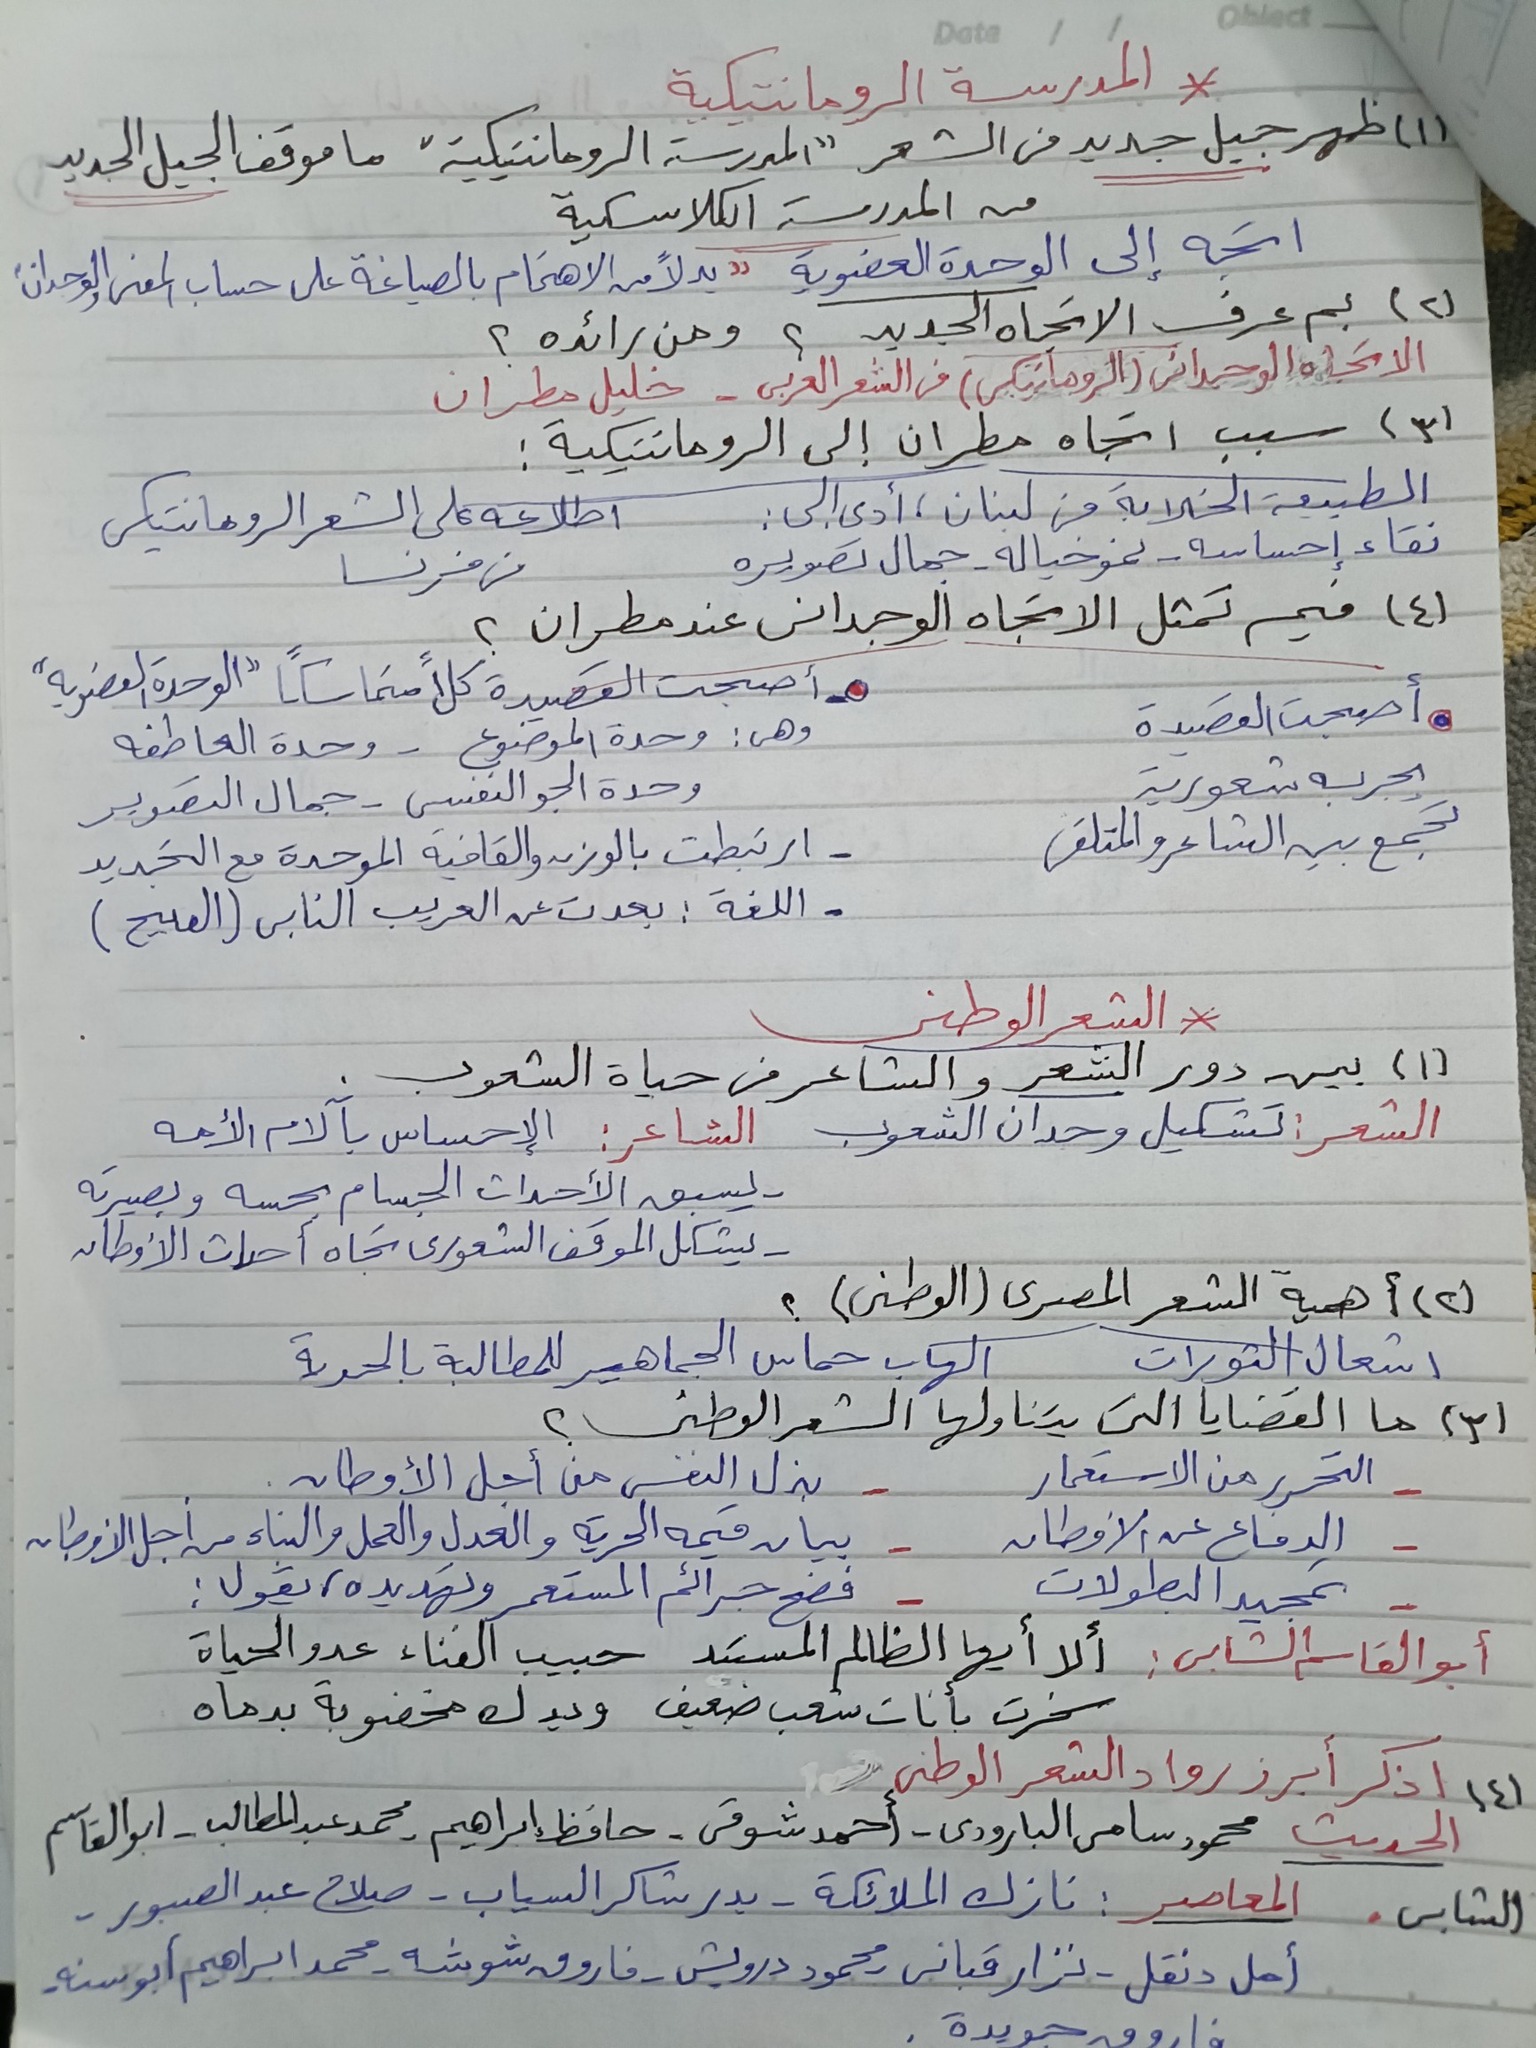 Date / / Object
* المدرسة الرومانتيكية
(١) ظهر جيل جديد من الشعر "المدرسة الرومانتيكية" ما موقف الجيل الجديد
من المدرسة الكلاسكية
اتجه إلى الوحدة العضوية "بدلاً من الاهتمام بالصياغة على حساب المعنى والوجدان"
(٢) بم عرف الاتجاه الجديد ؟ ومن رائده ؟
الاتجاه الوجدانى (الرومانتيكى) فى الشعر العربى - خليل مطران
(٣) سبب اتجاه مطران إلى الرومانتيكية :
الطبيعة الخلابة فى لبنان ، أدى إلى : اطلاعه على الشعر الرومانتيكى
نقاء إحساسه - نمو خياله - جمال تصويره فى فرنسا
(٤) فيم تمثل الاتجاه الوجدانى عند مطران ؟
أصبحت القصيدة - أصبحت القصيدة كلاً متماسكاً "الوحدة العضوية"
تجربة شعورية وهى : وحدة الموضوع - وحدة العاطفه
تجمع بين الشاعر والمتلقى وحدة الجو النفسى - جمال التصوير
- ارتبطت بالوزن والقافية الموحدة مع التجديد
- اللغة : بعدت عن الغريب النابى (القبيح)
* الشعر الوطنى
(١) بين دور الشعر والشاعر فى حياة الشعوب .
الشعر : تشكيل وجدان الشعوب الشاعر : الإحساس بآلام الأمه
- يسبق الأحداث الجسام بحسه وبصيرته
- يشكل الموقف الشعورى تجاه أحداث الأوطان
(٢) أهمية الشعر المصرى (الوطنى) ؟
اشعال الثورات الهاب حماس الجماهير للمطالبة بالحرية
(٣) ما القضايا التى يتناولها الشعر الوطنى ؟
- التحرير من الاستعمار - بذل النفس من أجل الأوطان .
- الدفاع عن الأوطان - بيان قيمه الحرية والعدل والعمل والبناء من أجل الأوطان
- تمجيد البطولات - فضح جرائم المستعمر وتهديده ، يقول :
أبو القاسم الشابى : ألا أيها الظالم المستبد حبيب الفناء عدو الحياة
سخرت بأنات شعب ضعيف ويدك مخضوبة بدماه
(٤) اذكر أبرز رواد الشعر الوطنى
الحديث محمود سامى البارودى - أحمد شوقى - حافظ إبراهيم - محمد عبد المطلب - ابو القاسم
الشابى . المعاصر : نازك الملائكة - بدر شاكر السياب - صلاح عبد الصبور -
أمل دنقل - نزار قبانى - محمود درويش - فاروق شوشه - محمد ابراهيم ابو سنه -
فاروق جويدة .